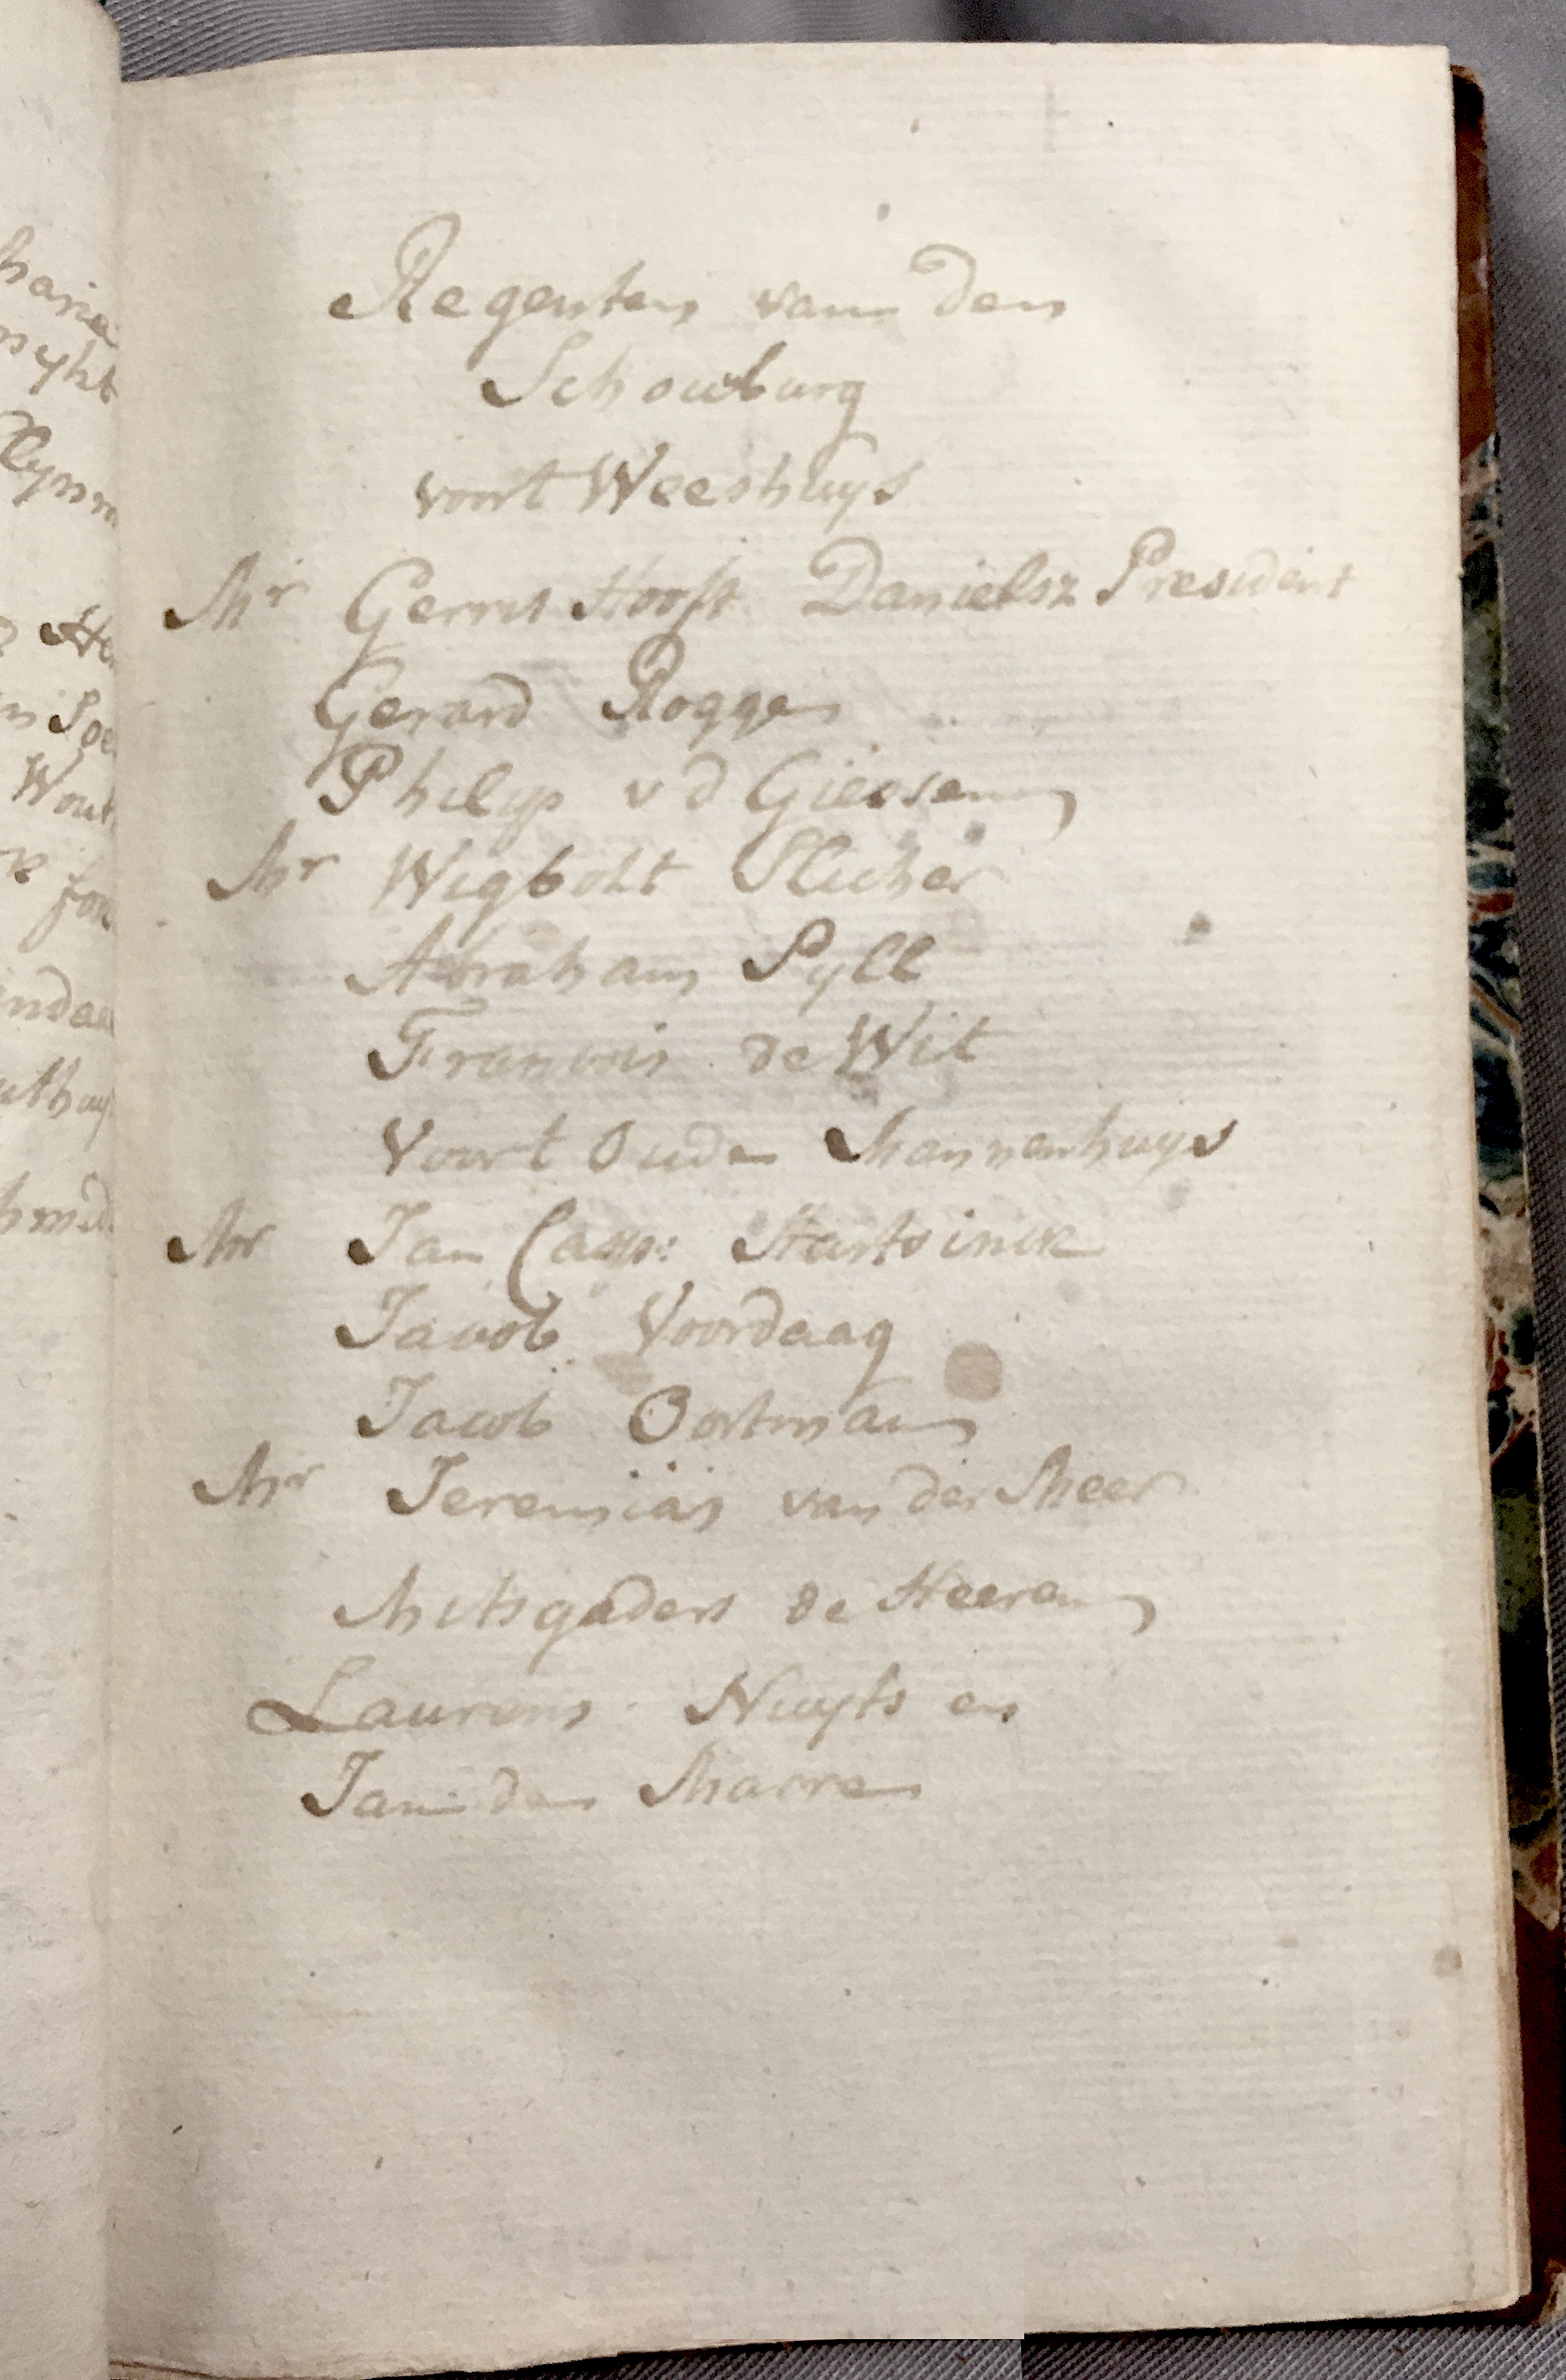 Regenten van den
Schouburg
voort Weeshuys
Mr Gerrit Hooft Danielsz President
Gerard Rogge
Philip v d Giessen
Mr Wigbolt Slicher
Abraham Pyll
Francois de Wit
Voort Oude Mannenhuys
Mr Jan Casp: Hartsinck
Jacob Voordaag
Jacob Oortman
Mr Jeremias van der Meer
Mitsgaders de Heeren
Laurens Nuyts en
Jan de Marre